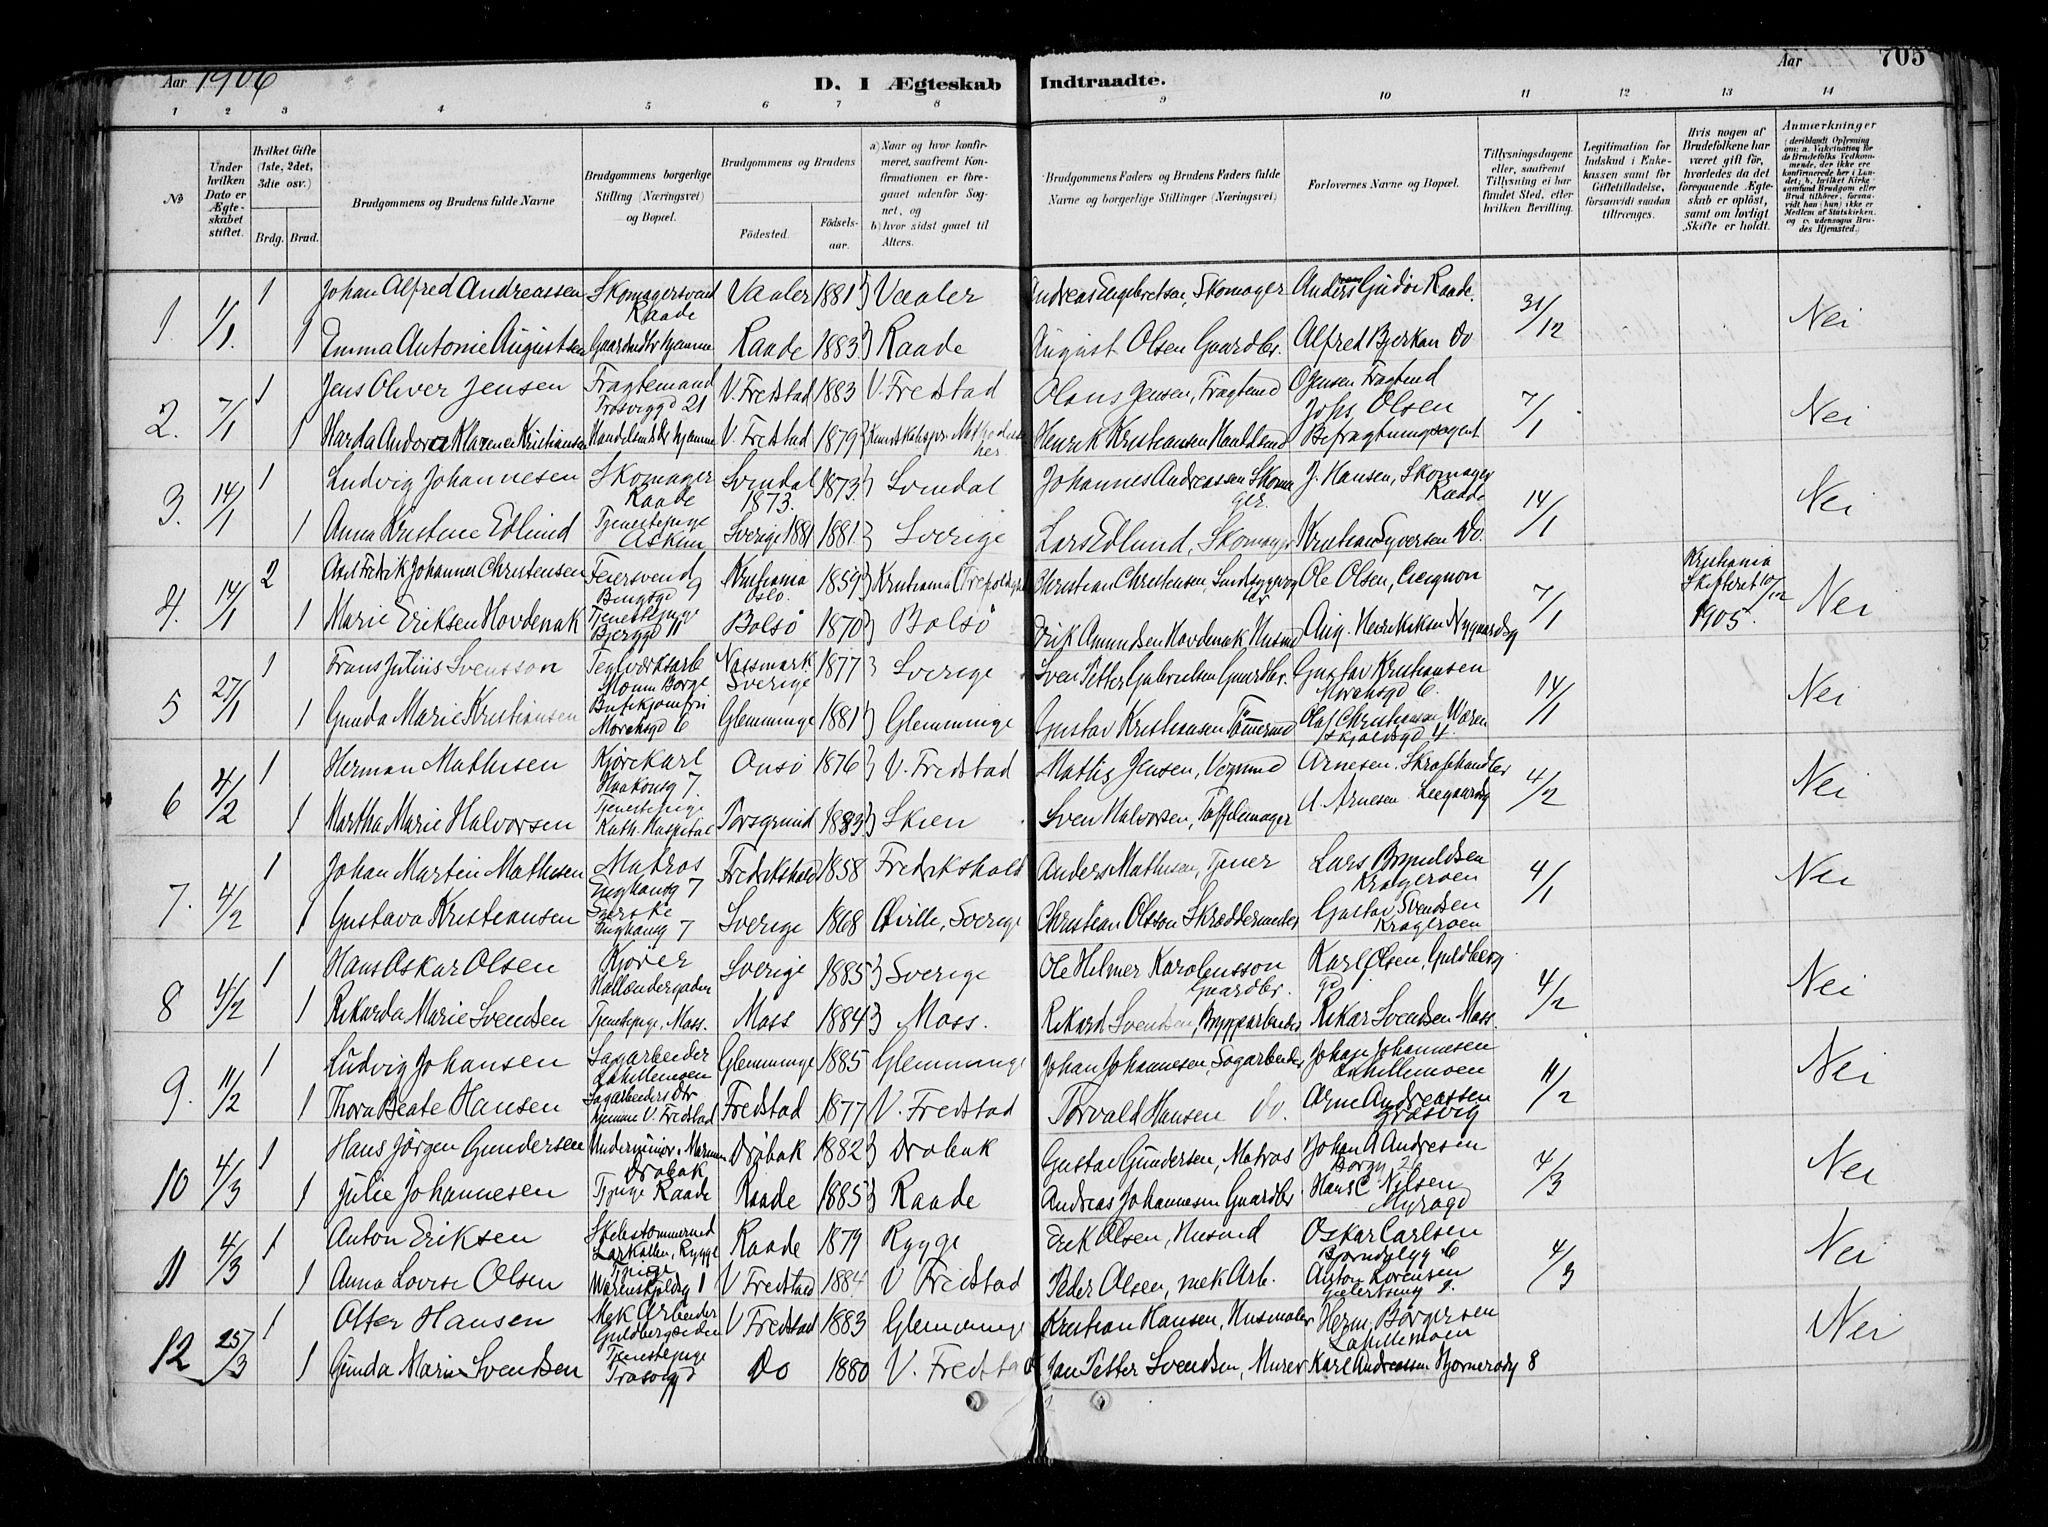 Aar 1906
D. I Ægteskab Indtraadte.
Aar 705
1 2 3 4 5 6 7 8 9 10 11 12 13 14
No
Under hvilken Dato er Ægteskabet stiftet.
Hvilket Gifte (1ste, 2det, 3die osv.)
Brdg. Brud.
Brudgommens og Brudens fulde Navne
Brudgommens borgerlige Stilling (Næringsvei) og Bopæl.
Brudgommens og Brudens
Födested. Födselsaar.
a) Naar og hvor konfirmeret, saafremt Konfirmationen er foregaaet udenfor Sognet, og
b) hvor sidst gaaet til Alters.
Brudgommens Faders og Brudens Faders fulde Navne og borgerlige Stillinger (Næringsvei)
Forlovernes Navne og Bopæl.
Tillysningsdagene eller, saafremt Tillysning ei har fundet Sted, efter hvilken Bevilling.
Legitimation for Indskud i Enkekassen samt for Giftetilladelse, forsaavidt saadan tiltrænges.
Hvis nogen af Brudefolkene har været gift før, hvorledes da det foregaaende Ægteskab er oplöst, samt om lovligt Skifte er holdt.
Anmærkninger
1. 1/1. 1 Johan Alfred Andreassen Skomagersvend Raade Vaaler 1881 Vaaler Andreas Engebretsen, Skomager Anders Gudim Raade. 31/12 Nei
1 Emma Antonie Augustsen Gaardbr hjemme Raade 1883 Raade August Olsen Gaardbr. Alfred Bjerkan Do
2. 7/1 1 Jens Oliver Jensen Fragtemand Trosviggd 21 V. Fredstad 1883 V. Fredstad Olaus Jensen, Fragtmd O Jensen Fragtmd 7/1 Nei
1 Kristiansen hjemme V. Fredstad 1879 Henrik Kristiansen Johs Olsen Befragtningsagent
3. 14/1 1 Ludvig Johannesen Skomager Raade Svindal 1873. 1873 Svindal Johannes Andreassen Skomager. J. Hansen, Skomager Raade 14/1 Nei
1 Anna Kristine Edlund Tjenestepige Askim Sverige 1881 1881 Sverige Lars Edlund, Skomager Kristian Syversen Do.
4. 14/1 2 Axel Fredrik Johannes Christensen Feiersvend Kristiania Oslo. 1859 Christian Christensen, Ole Olsen, 7/1 Kristiania Skifteret 10/12 1905. Nei
1 Marie Eriksen Hovdenak Tjenestepige Bjerggd 11 Bolsö 1870 Bolsö Erik Amundsen Hovdenak Husmd Aug. Henriksen Nygaardsg
5 27/1 1 Frans Julius Svensson Teglværksarb Moum Borge Nassmark Sverige 1877 Sverige Sven Petter Gabrielsen Gaardbr. Gustav Kristiansen Morchsgd 6. 14/1 Nei
1 Gunda Marie Kristiansen Butikjomfru Morchsgd 6 Glemminge 1881 Glemminge Gustav Kristiansen Tömmermd Olaf Christiansen Skjoldsgd 4.
6 4/2 1 Herman Mathisen Kjörekarl Haakonsg 7. Onsö 1876 V. Fredstad Mathis Jensen, Vognmd Arnesen, Skraphandler 4/2 Nei
1 Martha Marie Halvorsen Tjenestepige Kath. Hospital Porsgrund 1883 Skien Sven Halvorsen, Töffelmager A. Arnesen
7. 4/2 1 Johan Martin Mathisen Matros Enghausg 7 Fredrikshald 1858 Fredrikshald Anders Mathisen, Tjener Lars Brynildsen Krageroen 4/1 Nei
1 Gustava Kristiansen Enghausg 7 Sverige 1868 Qville, Sverige Christian Olsson Skræddermester Gustav Svendsen Krageroen
8 4/2 1 Hans Oskar Olsen Kjörer Hollændergaden Sverige 1885 Sverige Ole Helmer Karolensson Gaardbr. Karl Olsen, Guldberg gd 4/2 Nei
1 Rikarda Marie Svendsen Tjenestepige, Moss. Moss 1884 Moss. Rikard Svendsen, Bryggearbeider Rikar Svendsen Moss.
9. 11/2 1 Ludvig Johansen Sagarbeider Lahillemoen Glemminge 1885 Glemminge Johan Johannesen, Sagarbeider Johan Johannesen Lahillemoen 11/2 Nei
1 Thora Beate Hansen Sagarbeiders Dtr hjemme V. Fredstad Fredstad 1877 V. Fredstad Torvald Hansen do. Arne Andreassen Græsvig
10 4/3 1 Hans Jörgen Gundersen Underminör v. Marinen Dröbak Dröbak 1882 Dröbak Gustav Gundersen, Matros Johan A Andresen 4/3 Nei
1 Julie Johannesen Tjpige Raade Raade 1885 Raade Andreas Johannesen Gaardbr Hans C Nilsen Myragd
11 4/3 1 Anton Eriksen Larkollen, Rygge Raade 1879 Rygge Erik Olsen, Husmd Oskar Carlsen 4/3 Nei
1 Anna Lovise Olsen Tjpige Wærenskjoldg 1 V Fredstad 1884 V Fredstad Peder Olsen, mek Arb. Anton Sörensen
12 25/3 1 Otter Hansen Mek Arbeider Guldberggaden V Fredstad 1883 Glemminge Kristian Hansen, Husmaler Herm. Börgersen Lahillemoen Nei
1 Gunda Marie Svendsen Tjenestepige Trosvgd Do 1880 V. Fredstad Jan Petter Svendsen, Murer Karl Andreassen Bjornerødg 8